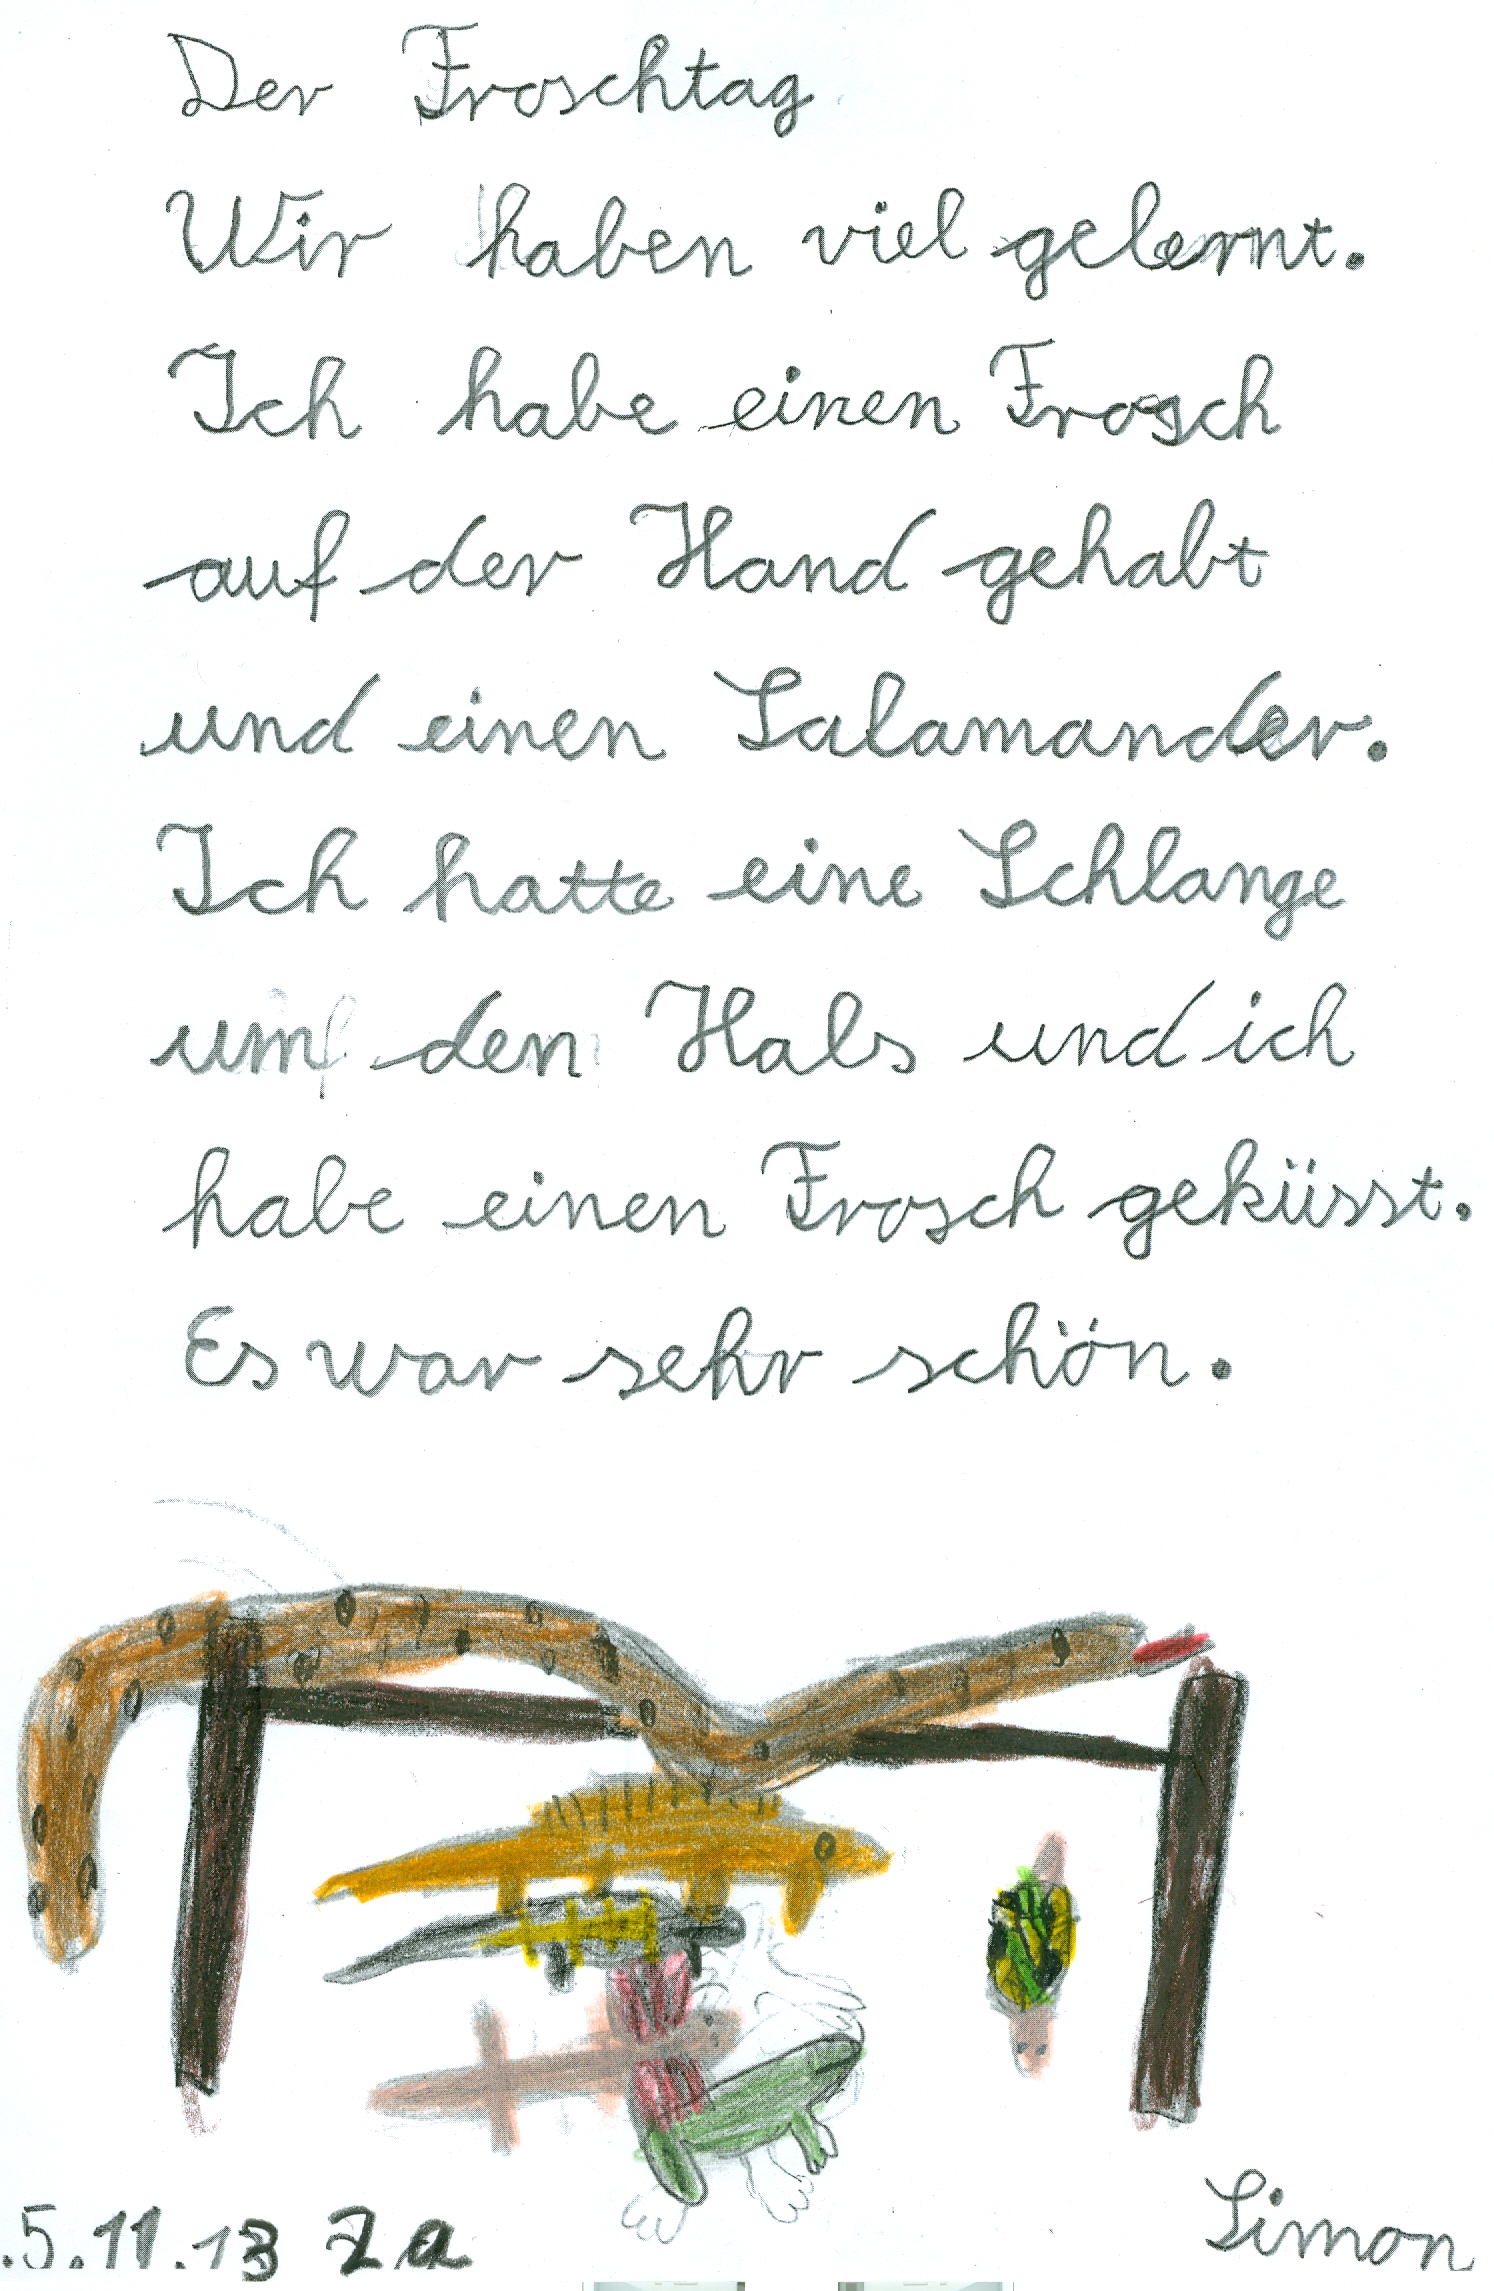 Der Froschtag
Wir haben viel gelernt.
Ich habe einen Frosch
auf der Hand gehabt
und einen Salamander.
Ich hatte eine Schlange
um den Hals und ich
habe einen Frosch geküsst.
Es war sehr schön.
.5.11.13 2a
Simon